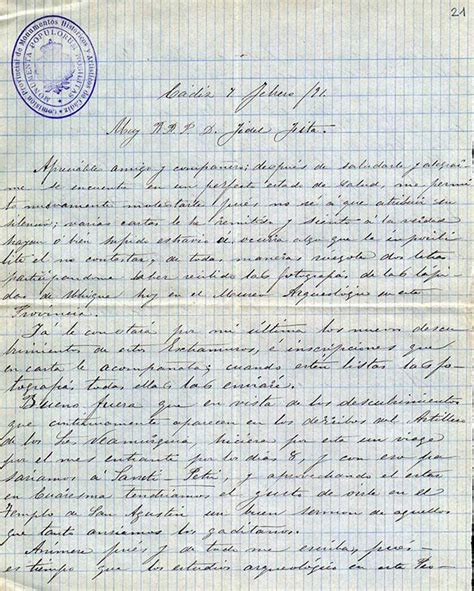 21
Comisión Provincial de Monumentos Históricos y Artísticos de Cádiz
Cadiz 7 Febrero /91.
Muy R.P. D. Fidel Fita.
Apreciable amigo y compañero: después de saludarle y
me se encuentra en un perfecto estado de salud, me permi
to nuevamente molestarle pues no sé á que atribuir su
silencio; varias cartas le he remitido y siento á la
hayan ó bien sufrido estravio ó ocurra algo que la imposibi
lite el no contestar, de todas maneras ruegole dos letras
participandome haber recibido las fotografias de las lapi
das de hoy en el Museo Arqueológico en esta
Provincia.
Yá le constará por mi última los nuevos descu
brimientos de estos é inscripciones que
en carta le acompañaba; cuando esten listas las fo
tografías todas ellas las enviaré.
Bueno fuera que en vista de los descubrimientos
que continuamente aparecen en los del Astillero
de los hiciera por esta un viage
por el mes entrante por los dias 8, y con eso pa
sariamos á Sancti Petri, y aprovechando el estar
en Cuaresma tendriamos el gusto de oirle en el
Templo de San Agustin un buen sermon de aquellos
que tanto ansiamos los gaditanos.
Animese pues y de todo me escriba, pues
es tiempo que los estudios arqueológicos en esta Pro-